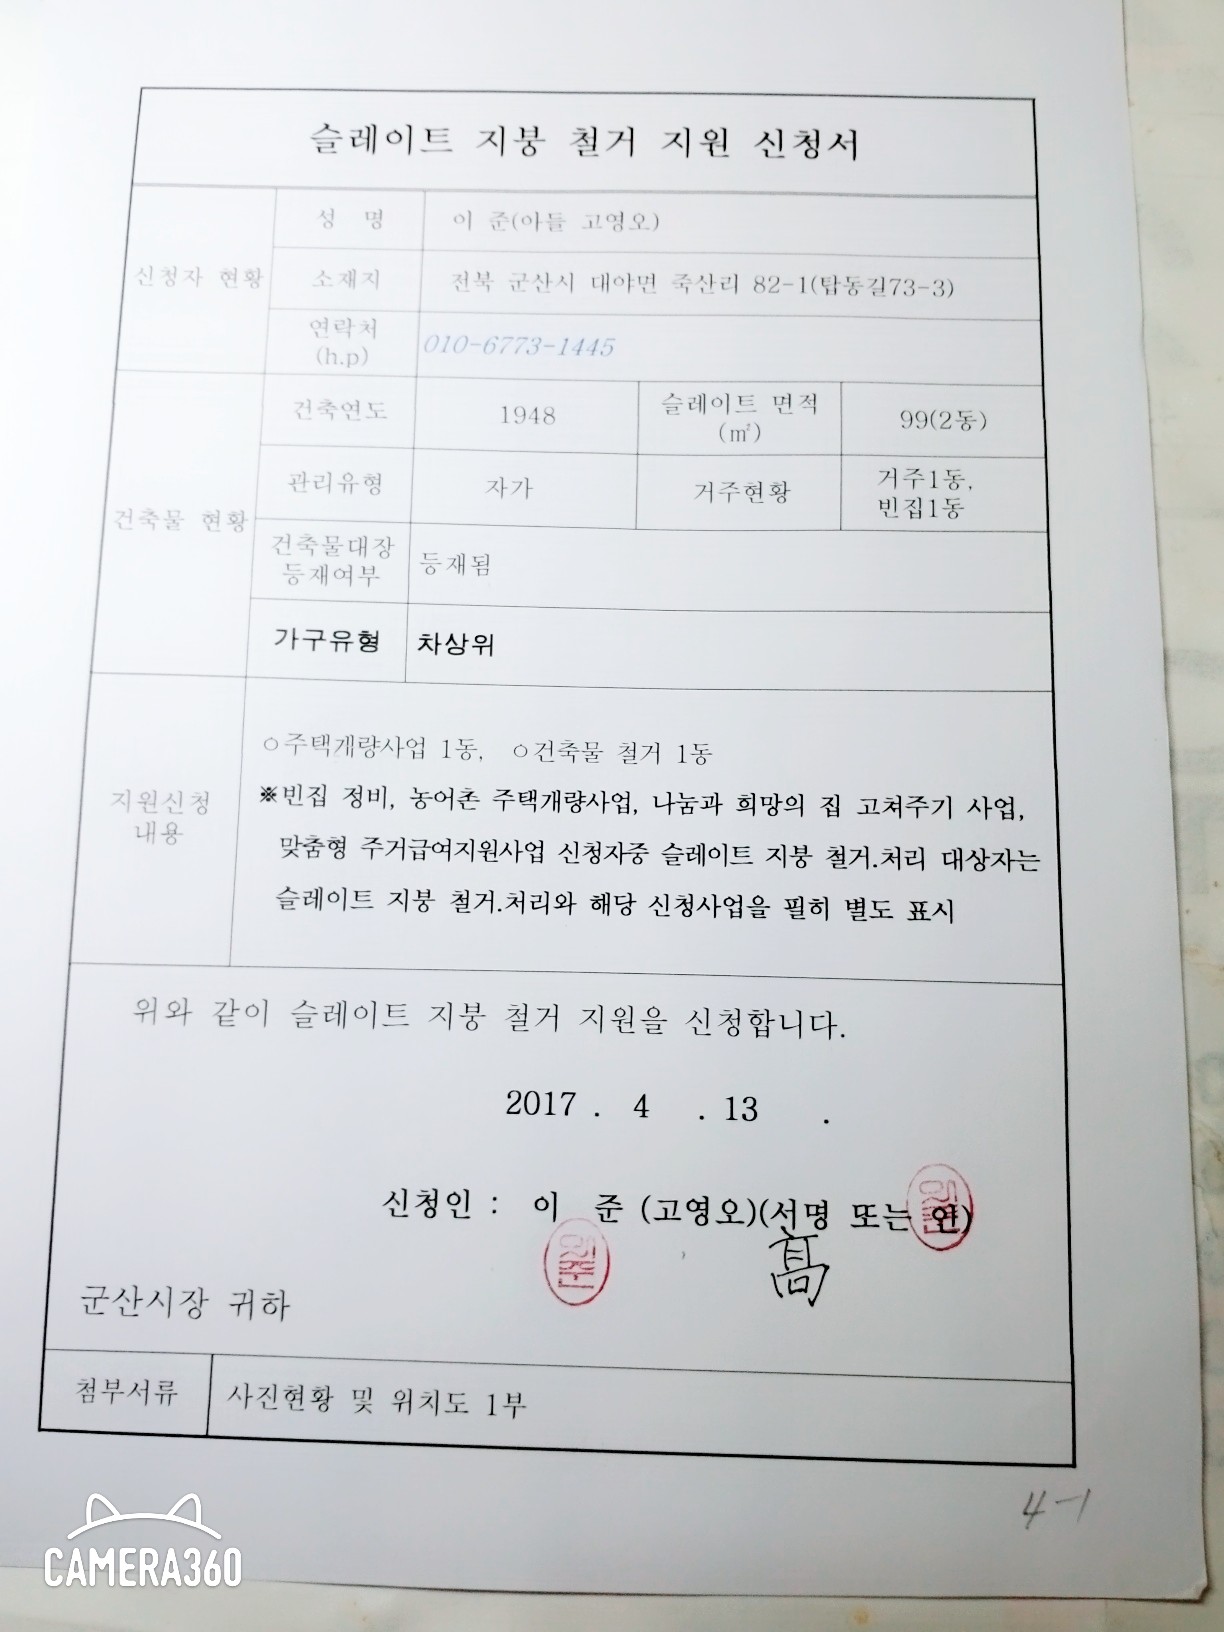 슬레이트 지붕 철거 지원 신청서
신청자 현황
성 명
이 준(아들 고영오)
소재지
전북 군산시 대야면 죽산리 82-1(탑동길73-3)
연락처
(h.p)
010-6773-1445
건축물 현황
건축연도
1948
슬레이트 면적
(㎡)
99(2동)
관리유형
자가
거주현황
거주1동,
빈집1동
건축물대장
등재여부
등재됨
가구유형
차상위
지원신청
내용
○주택개량사업 1동, ○건축물 철거 1동
※빈집 정비, 농어촌 주택개량사업, 나눔과 희망의 집 고쳐주기 사업,
맞춤형 주거급여지원사업 신청자중 슬레이트 지붕 철거.처리 대상자는
슬레이트 지붕 철거.처리와 해당 신청사업을 필히 별도 표시
위와 같이 슬레이트 지붕 철거 지원을 신청합니다.
2017 . 4 . 13 .
신청인 : 이 준 (고영오)(서명 또는 인)
이준
高
군산시장 귀하
첨부서류
사진현황 및 위치도 1부
4-1
CAMERA360